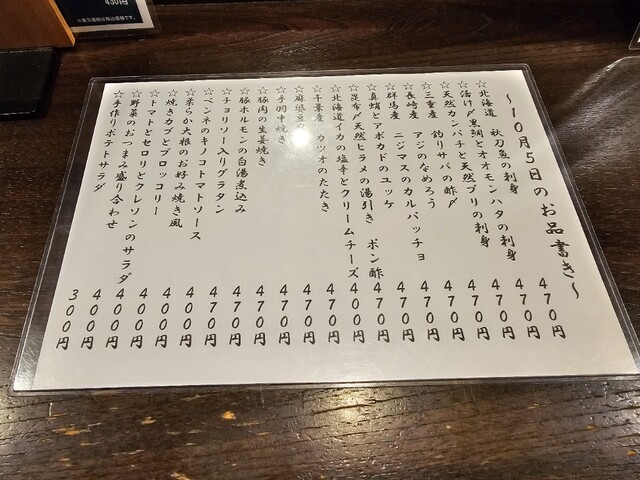 430円
※表示価格は税込価格です。
~10月5日のお品書き~
☆北海道 秋刀魚の刺身 470円
☆活け〆黒鯛とオオモンハタの刺身 470円
☆天然カンパチと天然ブリの刺身 470円
☆三重産 釣りサバの酢〆 470円
☆長崎産 アジのなめろう 470円
☆群馬産 ニジマスのカルパッチョ 470円
☆真蛸とアボカドのユッケ 470円
☆昆布〆天然ヒラメの湯引き ポン酢 470円
☆北海道イカの塩辛とクリームチーズ 400円
☆千葉産 カツオのたたき 470円
☆麻婆豆 470円
☆手羽中焼き 470円
☆豚肉の生姜焼き 470円
☆豚ホルモンの白湯煮込み 470円
☆チョリソー入りグラタン 470円
☆ペンネのキノコトマトソース 400円
☆柔らか大根のお好み焼き風 400円
☆焼きカブとブロッコリー 400円
☆トマトとセロリとクレソンのサラダ 400円
☆野菜のおつまみ盛り合わせ 400円
☆手作りポテトサラダ 300円